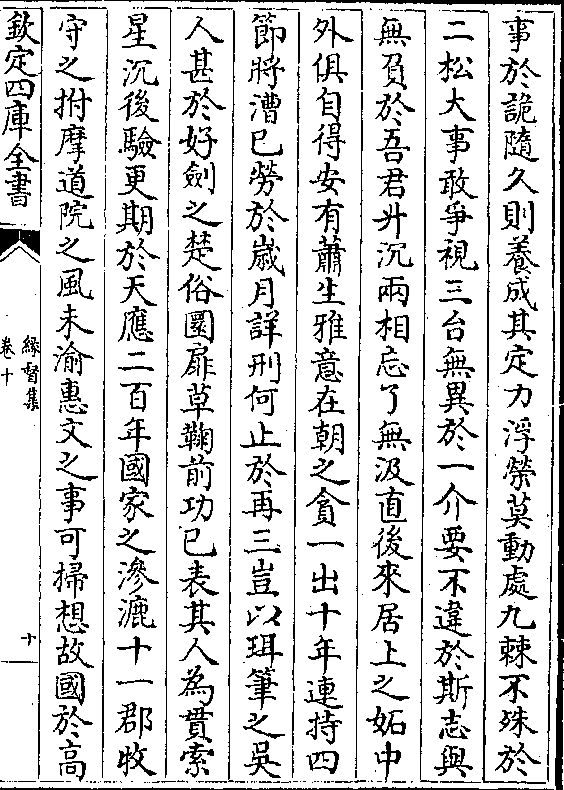 事於詭隨久則養成其定力浮榮莫動處九棘不殊於
二松大事敢爭視三台無異於一介要不違於斯志與
無負於吾君升沉兩相忘了無汲直後來居上之妬中
外俱自得安有蕭生雅意在朝之貪一出十年連持四
節將漕已勞於歲月詳刑何止於再三豈以珥筆之吳
人甚於好劍之楚俗圜扉草鞠前功已表其人為貫索
星沉後驗更期於天應二百年國家之滲漉十一郡牧
守之拊摩道院之風未渝惠文之事可掃想故國於高
欽定四庫全書
緣督集
卷十
十